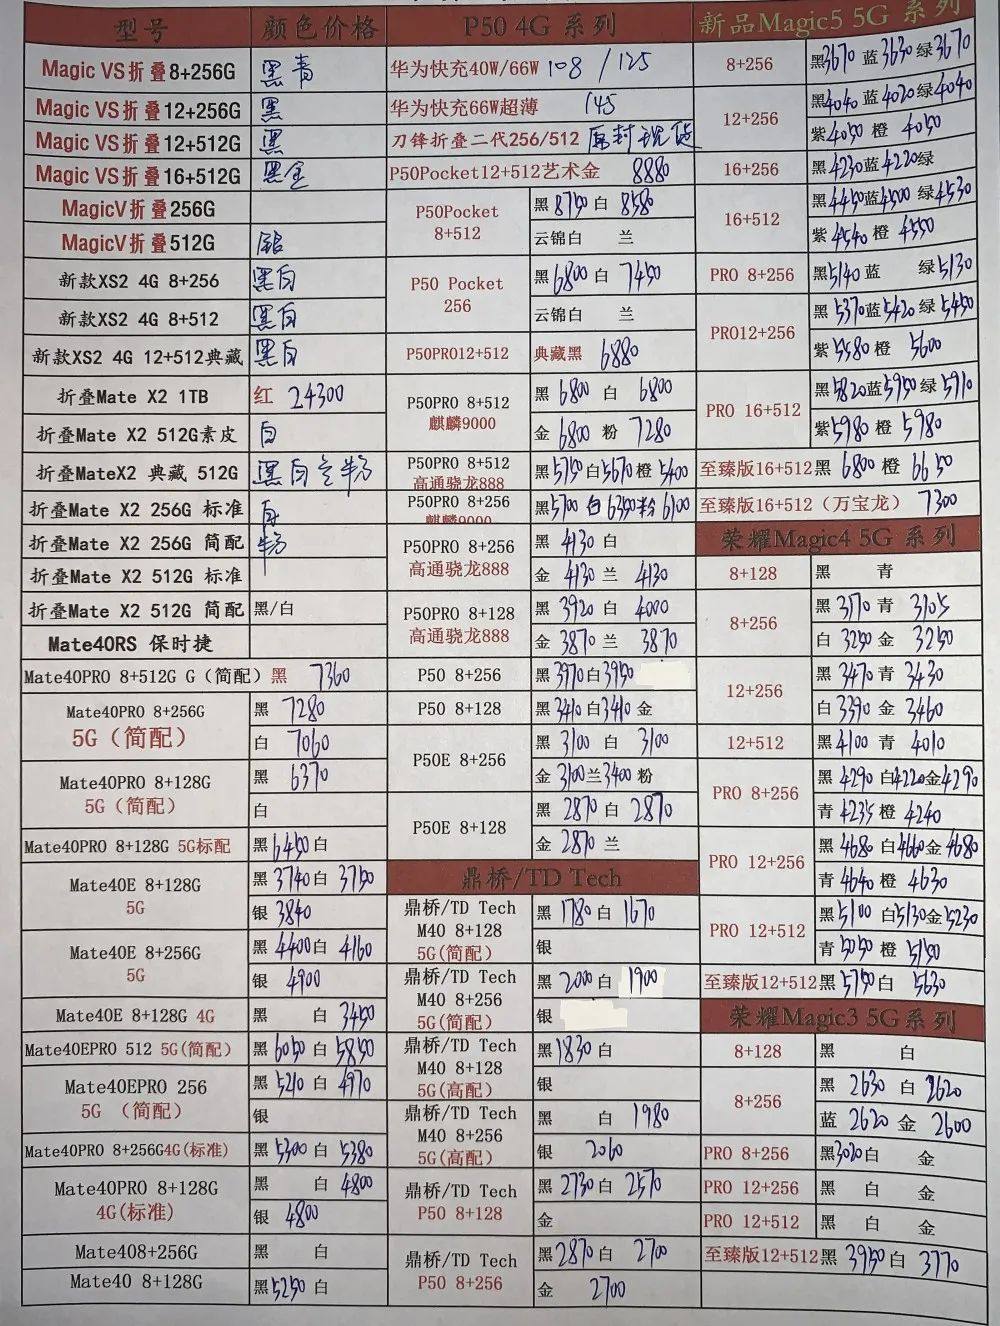 型号 颜色价格
Magic VS折叠8+256G 黑 青
Magic VS折叠12+256G 黑
Magic VS折叠12+512G 黑
Magic VS折叠16+512G 黑金
MagicV折叠256G
MagicV折叠512G 银
新款XS2 4G 8+256 黑白
新款XS2 4G 8+512 黑白
新款XS2 4G 12+512典藏 黑白
折叠Mate X2 1TB 红 24300
折叠Mate X2 512G素皮 白
折叠MateX2 典藏 512G 黑白
折叠Mate X2 256G 标准
折叠Mate X2 256G 简配
折叠Mate X2 512G 标准
折叠Mate X2 512G 简配 黑/白
Mate40RS 保时捷
Mate40PRO 8+512G G（简配）黑 7360
Mate40PRO 8+256G
5G（简配）
黑 7280
白 7060
Mate40PRO 8+128G
5G（简配）
黑 6370
白
Mate40PRO 8+128G 5G标配 黑6450白
Mate40E 8+128G
5G
黑3740白 3750
银 3840
Mate40E 8+256G
5G
黑 4400白 4160
银 4900
Mate40E 8+128G 4G 黑 白 3450
Mate40EPRO 512 5G(简配) 黑 6050白 5850
Mate40EPRO 256
5G （简配）
黑 5210 白 4970
银
Mate40PRO 8+256G4G(标准) 黑 5300白 5380
Mate40PRO 8+128G
4G(标准)
黑 白 4800
银 4800
Mate408+256G 黑 白
Mate40 8+128G 黑5250白
P50 4G 系列
华为快充40W/66W 108 /125
华为快充66W超薄 145
刀锋折叠二代256/512 原封现货
P50Pocket12+512艺术金 8880
P50Pocket
8+512
黑 8750 白 8580
云锦白 兰
P50 Pocket
256
黑 6800 白 7450
云锦白 兰
P50PRO12+512 典藏黑 6880
P50PRO 8+512
麒麟9000
黑 6800 白 6800
金 6800 粉 7280
P50PRO 8+512
高通骁龙888
黑5750白5670橙 5400
P50PRO 8+256
麒麟9000
黑5700 白6350粉6100
P50PRO 8+256
高通骁龙888
黑 4130 白
金 4130 兰 4130
P50PRO 8+128
高通骁龙888
黑 3920 白 4000
金 3870 兰 3870
P50 8+256 黑3970白3950
P50 8+128 黑3410白3410金
P50E 8+256
黑 3100 白 3100
金 3100兰3400 粉
P50E 8+128
黑 2870 白 2870
金 2870 兰
鼎桥/TD Tech
鼎桥/TD Tech
M40 8+128
5G(简配)
黑 1780白 1670
银
鼎桥/TD Tech
M40 8+256
5G(简配)
黑 2000白 1900
银
鼎桥/TD Tech
M40 8+128
5G(高配)
黑1830白
银
鼎桥/TD Tech
M40 8+256
5G(高配)
黑 白 1980
银 2060
鼎桥/TD Tech
P50 8+128
黑 2730 白 2570
金
鼎桥/TD Tech
P50 8+256
黑 2870白 2700
金 2700
新品Magic5 5G 系列
8+256 黑3670 蓝 3630绿3670
12+256
黑4040 蓝 4020绿4040
紫4050 橙 4050
16+256 黑 4230蓝4220绿
16+512
黑4450蓝4500 绿4530
紫 4540 橙 4550
PRO 8+256 黑5140蓝 绿5130
PRO12+256
黑 5370蓝5420绿 5450
紫 5580橙 5600
PRO 16+512
黑5820蓝5950绿 5910
紫5980 橙 5980
至臻版16+512黑 6800 橙 6650
至臻版16+512（万宝龙） 7300
荣耀Magic4 5G 系列
8+128 黑 青
8+256
黑 3170 青 3105
白 3250 金 3250
12+256
黑 3470 青 3430
白 3390 金 3460
12+512 黑4100 青 4010
PRO 8+256
黑 4290 白4220金4290
青 4235 橙 4240
PRO 12+256
黑 4680 白4660金 4680
青 4640 橙 4630
PRO 12+512
黑 5100 白5130金5230
青 5050橙 5150
至臻版12+512黑 5750白 5630
荣耀Magic3 5G系列
8+128 黑 白
8+256
黑 2630 白 2620
蓝 2620 金 2600
PRO 8+256 黑3020白 金
PRO 12+256 黑 白 金
PRO 12+512 黑 白 金
至臻版12+512黑 3950白 3770